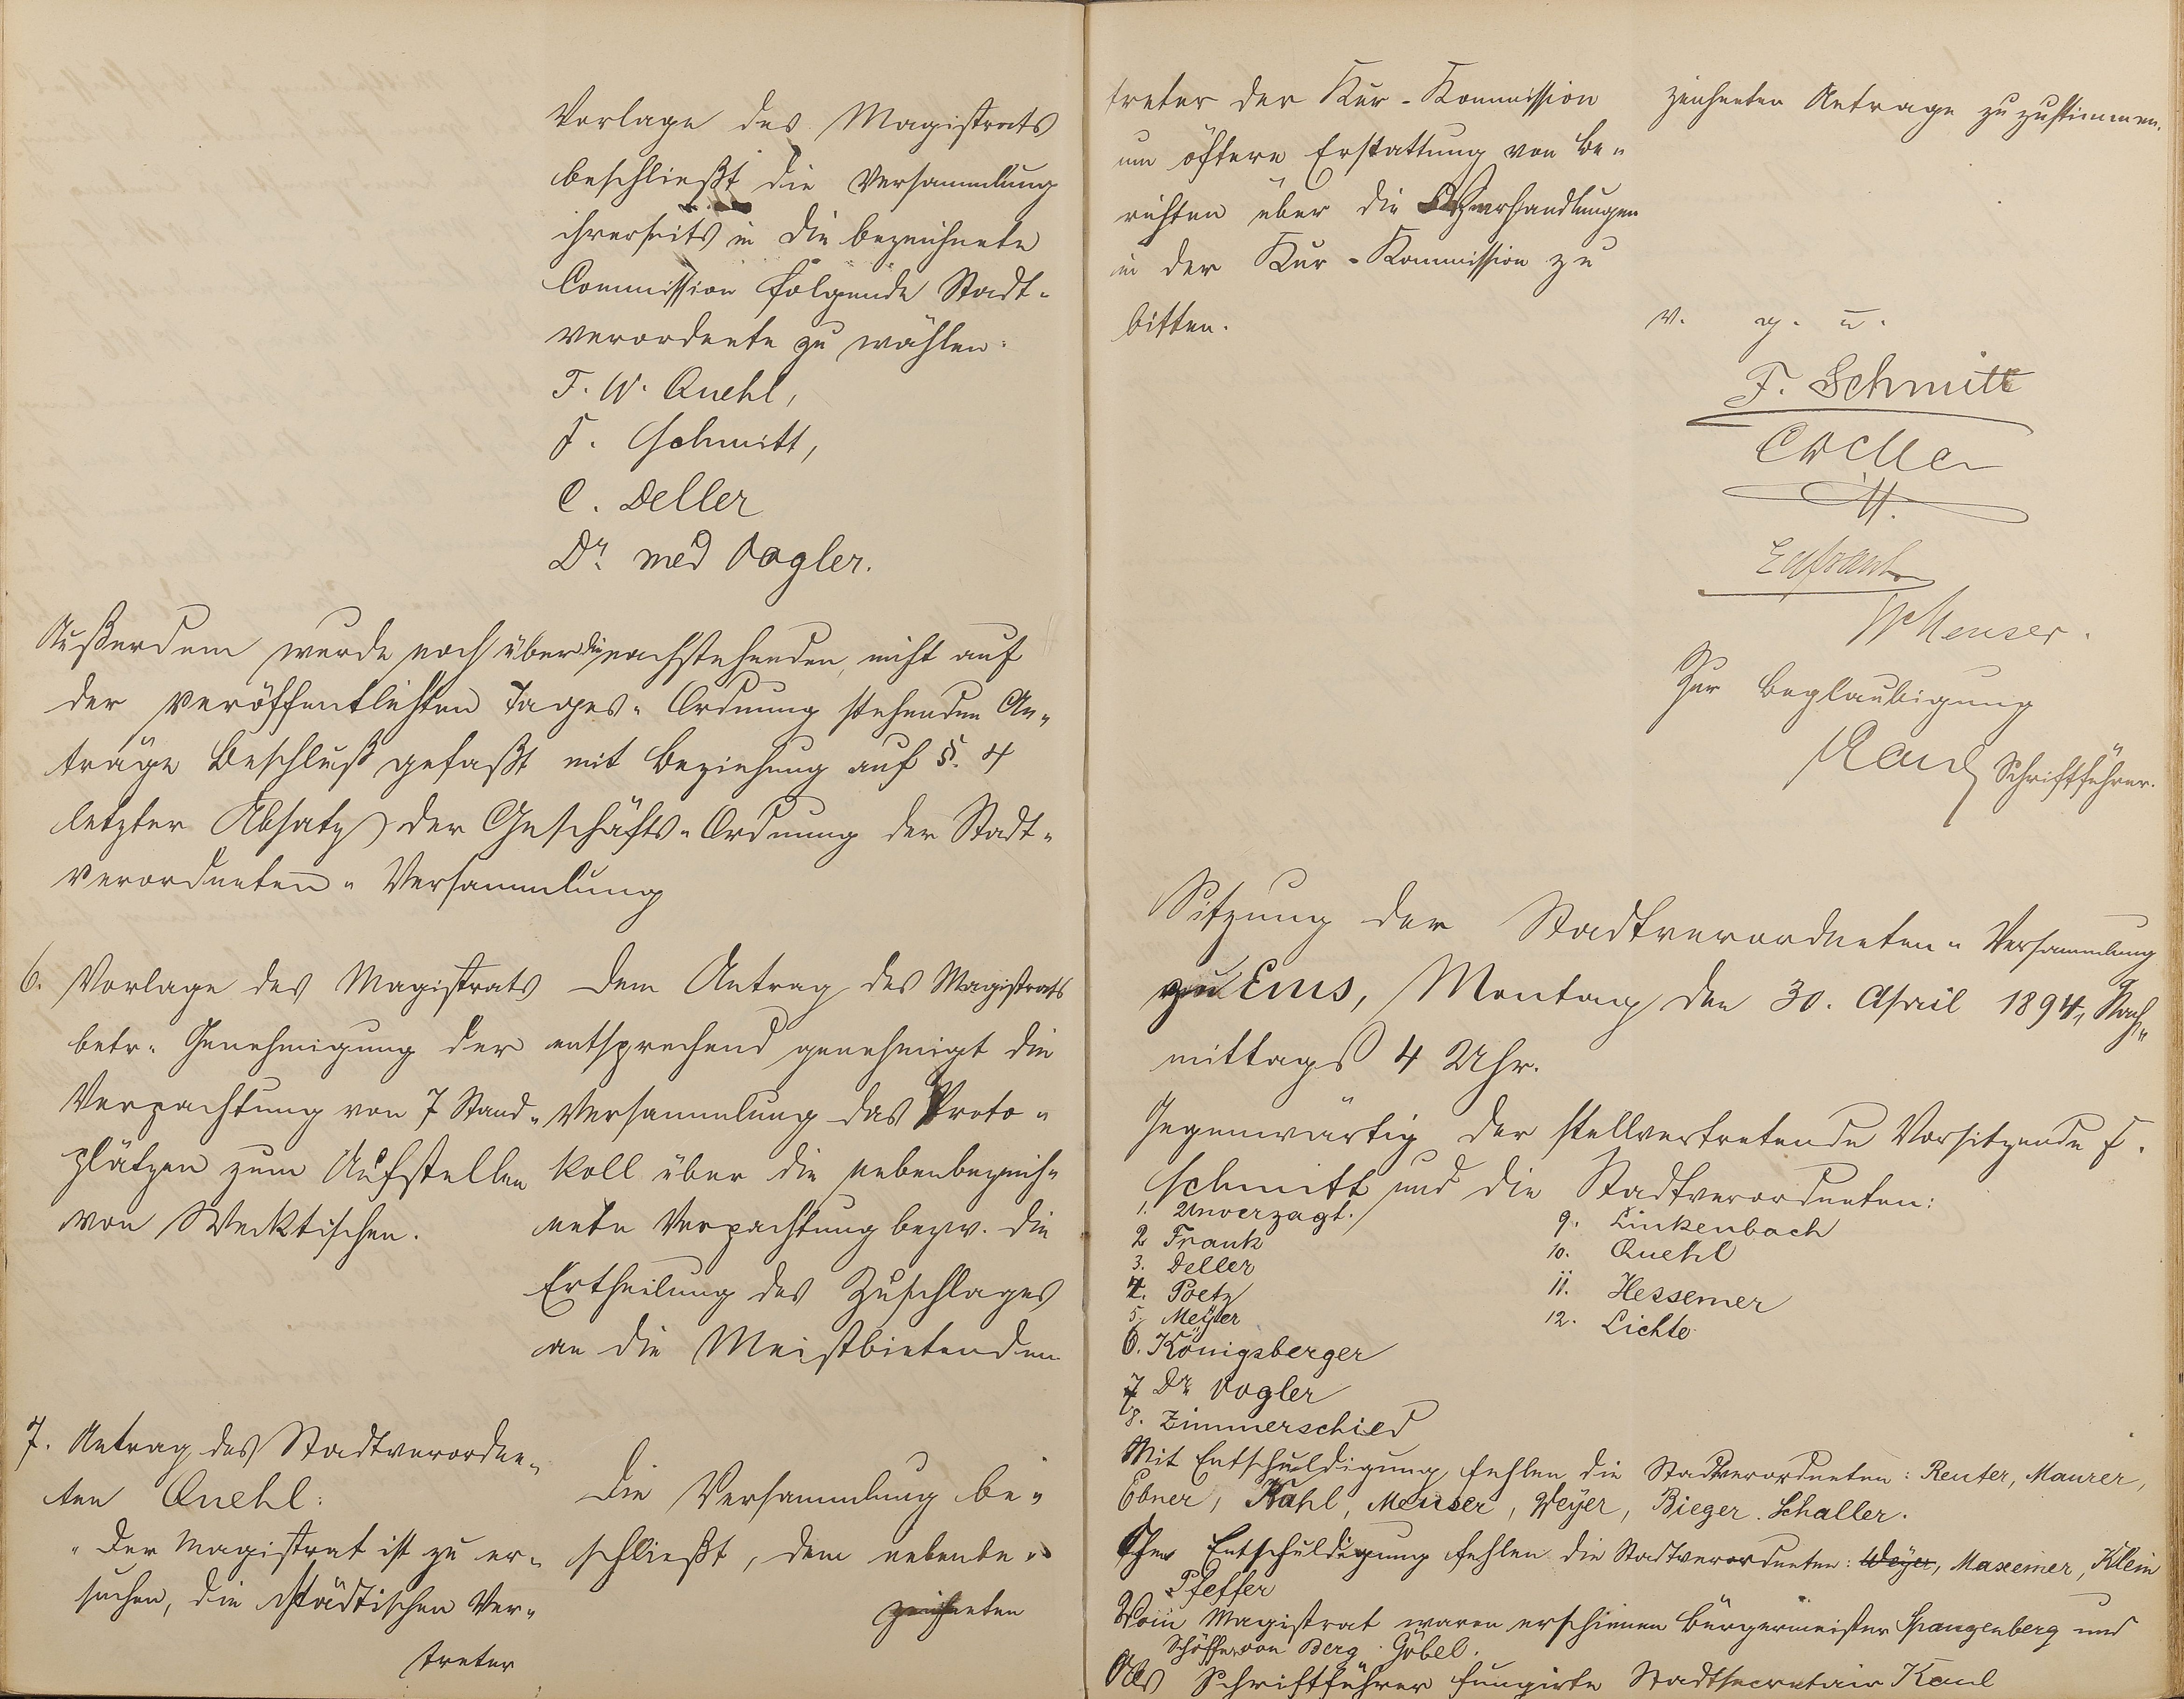 Vorlage des Magistrats
beschließt die Versammlung
ihrerseits in die bezeichnete
Commission folgende Stadt-
verordnete zu wählen:
F. W. Quehl,
F. Schmitt,
C. Deller
Dr. med Vogler.
Außerdem wurde noch über die nachstehenden, nicht auf
der veröffentlichten Tages-Ordnung stehenden An-
träge Beschluß gefaßt mit Beziehung auf §. 4
letzter Absatz der Geschäfts-Ordnung der Stadt-
verordneten-Versammlung
6. Vorlage des Magistrats
betr. Genehmigung der
Verpachtung von 7 Stand-
plätzen zum Aufstellen
von Wecktischen.
Dem Antrag des Magistrats
entsprechend genehmigt die
Versammlung das Proto-
koll über die nebenbezeich-
nete Verpachtung bezw. die
Ertheilung des Zuschlages
an die Meistbietenden
7. Antrag des Stadtverordne-
ten Quehl:
"Der Magistrat ist zu er-
suchen, die städtischen Ver-
treter
Die Versammlung be-
schließt, dem nebenbe-
zeichneten
treter der Kur-Kommission
um öftere Erstattung von Be-
richten über die Verhandlungen
in der Kur-Kommission zu
bitten.
zeichneten Antrage zuzustimmen.
v. g. u.
F. Schmitt
C Deller
Ed Frank
W Meuser.
Zur Beglaubigung
Kaul Schriftführer.
Sitzung der Stadtverordneten-Versammlung
zu Ems, Montag den 30. April 1894, Nach-
mittags 4 Uhr.
Gegenwärtig der stellvertretende Vorsitzende F.
Schmitt und die Stadtverordneten:
1. Unverzagt.
2 Frank
3. Deller
4. Poetz
5. Meyer
6. Königsberger
7 Dr. Vogler
8. Zimmerschied
9. Linkenbach
10. Quehl
11. Hessemer
12. Lichte
Mit Entschuldigung fehlen die Stadtverordneten: Reuter, Maurer,
Ebner, Kahl, Meuser, Weyer, Bieger. Schaller.
Ohne Entschuldigung fehlen die Stadtverordneten: Weyer, Maxeiner, Klein
Pfeffer
Vom Magistrat waren erschienen Bürgermeister Spangenberg und
Schöffen von Berg. Göbel.
Als Schriftführer fungirte Stadtsecretair Kaul